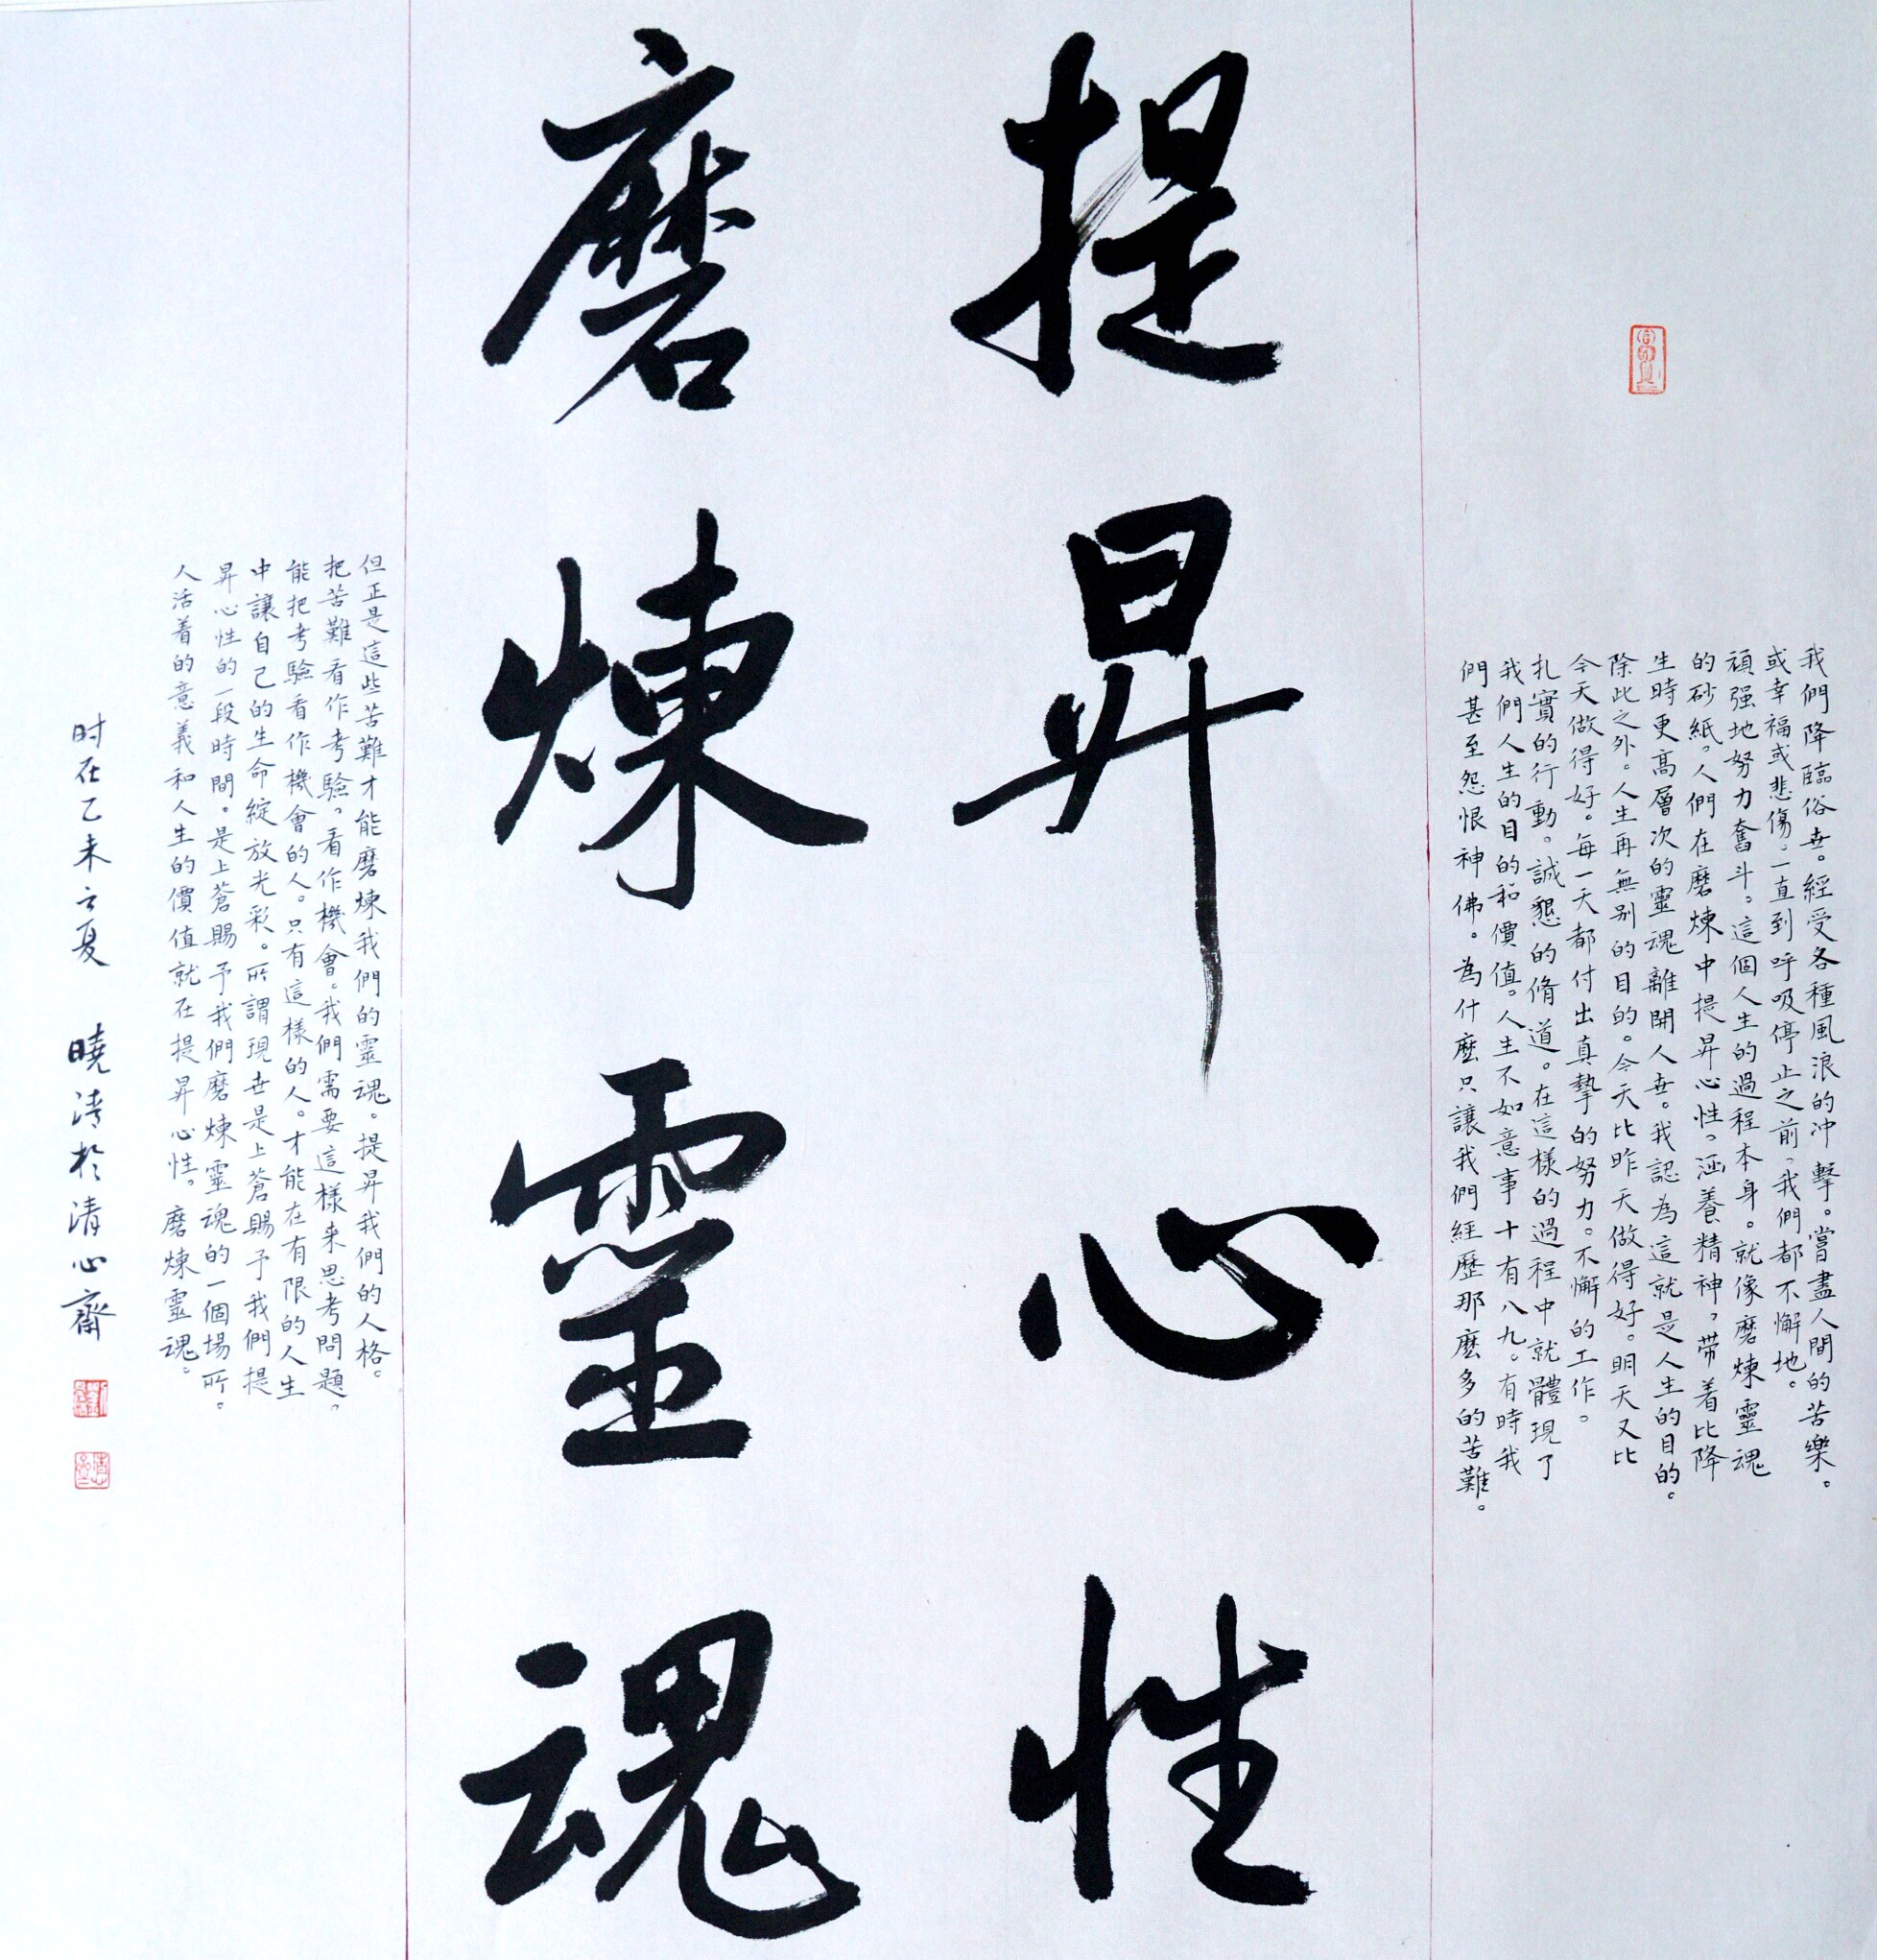 我們降臨俗世。經受各種風浪的沖擊。嘗盡人間的苦樂。
或幸福或悲傷。一直到呼吸停止之前，我們都不懈地。
頑强地努力奮斗。這個人生的過程本身。就像磨煉靈魂
的砂紙。人們在磨煉中提昇心性，涵養精神，带着比降
生時更高層次的靈魂離開人世。我認為這就是人生的目的。
除此之外。人生再無别的目的。今天比昨天做得好。明天又比
今天做得好。每一天都付出真摯的努力。不懈的工作。
扎實的行動。誠懇的脩道。在這樣的過程中就體現了
我們人生的目的和價值。人生不如意事十有八九。有時我
們甚至怨恨神佛。為什麽只讓我們經歷那麽多的苦難。
提昇心性
磨煉靈魂
但正是這些苦難才能磨煉我們的靈魂。提昇我們的人格。
把苦難看作考驗。看作機會。我們需要這樣来思考問題。
能把考驗看作機會的人。只有這樣的人。才能在有限的人生
中讓自己的生命綻放光彩。所謂現世是上蒼賜予我們提
昇心性的一段時間。是上蒼賜予我們磨煉靈魂的一個場所。
人活着的意義和人生的價值就在提昇心性。磨煉靈魂。
时在乙未之夏 曉清於清心齋